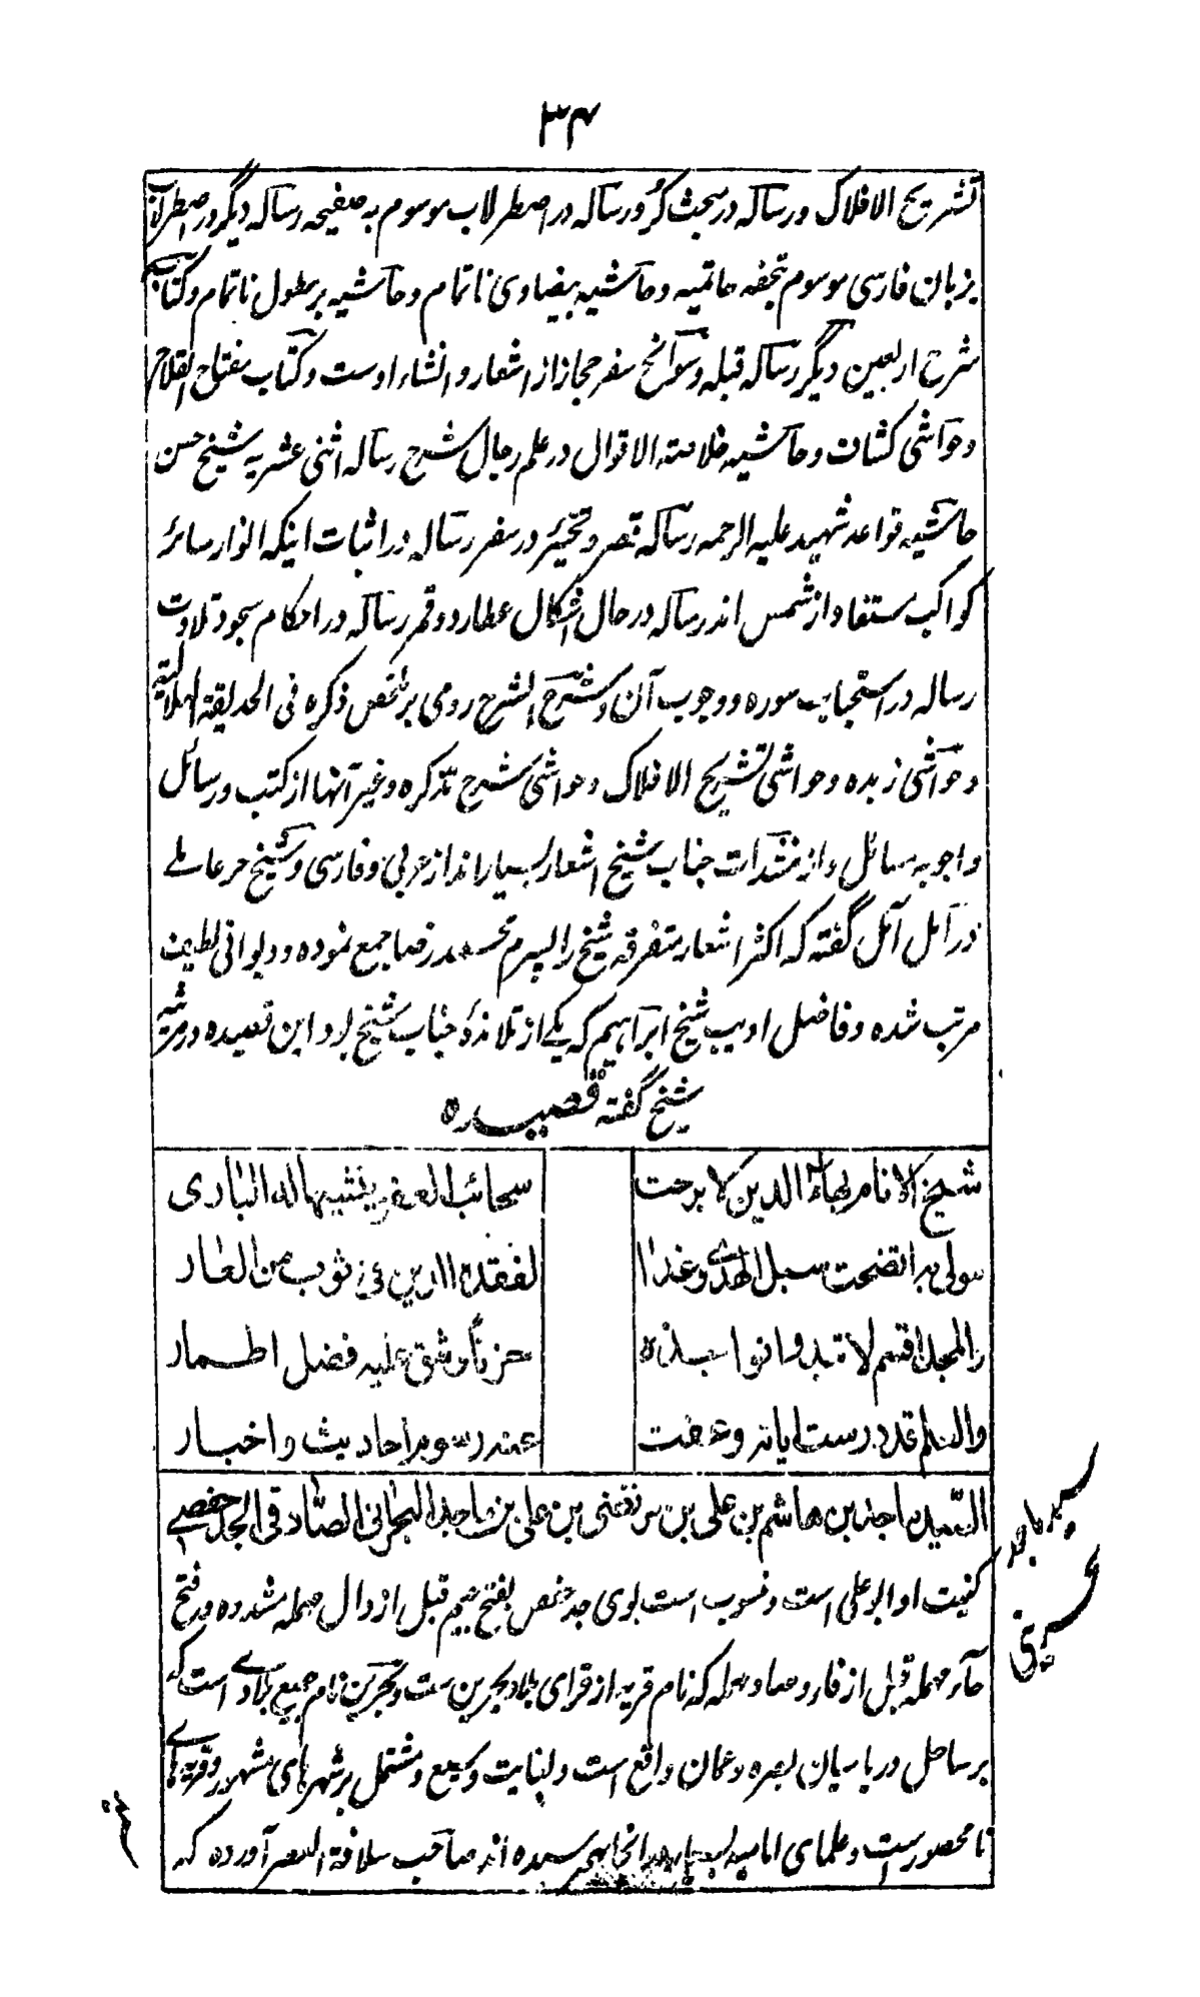 ۳۴
تشریح الافلاک ورساله در مبحث کر ورساله در اصطرلاب موسوم به صفیحه رساله دیگر در اصطرلاب
بزبان فارسی موسوم بتحفه حاتمیه وحاشیه بیضاوی ناتمام وحاشیه بر مطول ناتمام وکتاب
شرح اربعین دیگر رساله قبله وسوانح سفر حجاز از اشعار وانشاء اوست وکتاب مفتاح الفلاح
وحواشی کشاف وحاشیه خلاصة الاقوال در علم رجال شرح رساله اثنی عشریه شیخ حسن
حاشیه قواعد شهید علیه الرحمه رساله قصر وتخیر در سفر رساله در اثبات اینکه انوار سائر
کواکب مستفاد از شمس اند رساله در حال اشکال عطارد وقمر رساله در احکام سجود تلاوت
رساله در استحباب سوره ووجوب آن وشرح الشرح رومی بر ملخص ذکره فی الحدیقة الهلالیه
وحواشی زبده وحواشی تشریح الافلاک وحواشی شرح تذکره وغیر آنها از کتب ورسائل
واجوبه مسائل واز منشدات جناب شیخ اشعار بسیار اند از عربی وفارسی وشیخ حر عاملی
در امل آمل گفته که اکثر اشعار متفرقه شیخ را پسرم محمد رضا جمع نموده ودیوانی لطیف
مرتب شده وفاضل ادیب شیخ ابراهیم که یکی از تلامذهٔ جناب شیخ بود این قصیده در مرثیه
شیخ گفته قصیده
شیخ الانام بهاء الدین لا برحت سحائب العفو ینشیها له الباری
مولی به اتضحت سبل الهدی وغدا لفقده الدین فی ثوب من القار
والمجد اقسم لا تبدو نواجذه حزنا وشق علیه فضل اطمار
والعلم قد درست ایاته وعفت عنه رسوم احادیث واخبار
السید ماجد بن هاشم بن علی بن مرتضی بن علی بن ماجد البحرانی الصادقی الجدحفصی
سید ماجد بحرینی
کنیت او ابو علی است ومنسوب است بسوی جد حفص بفتح جیم قبل از دال مهمله مشدده وفتح
حاء مهمله قبل از فاء وصاد مهمله که نام قریه از قرای بلاد بحرین ست وبحرین نام جمیع بلادی است که
بر ساحل دریا میان بصره وعمان واقع است وبغایت وسیع ومشتمل بر شهرهای مشهور وقریه های
نا محصور است وعلمای امامیه بسیار از آنجا بهم رسیده اند صاحب سلافة العصر آورده که